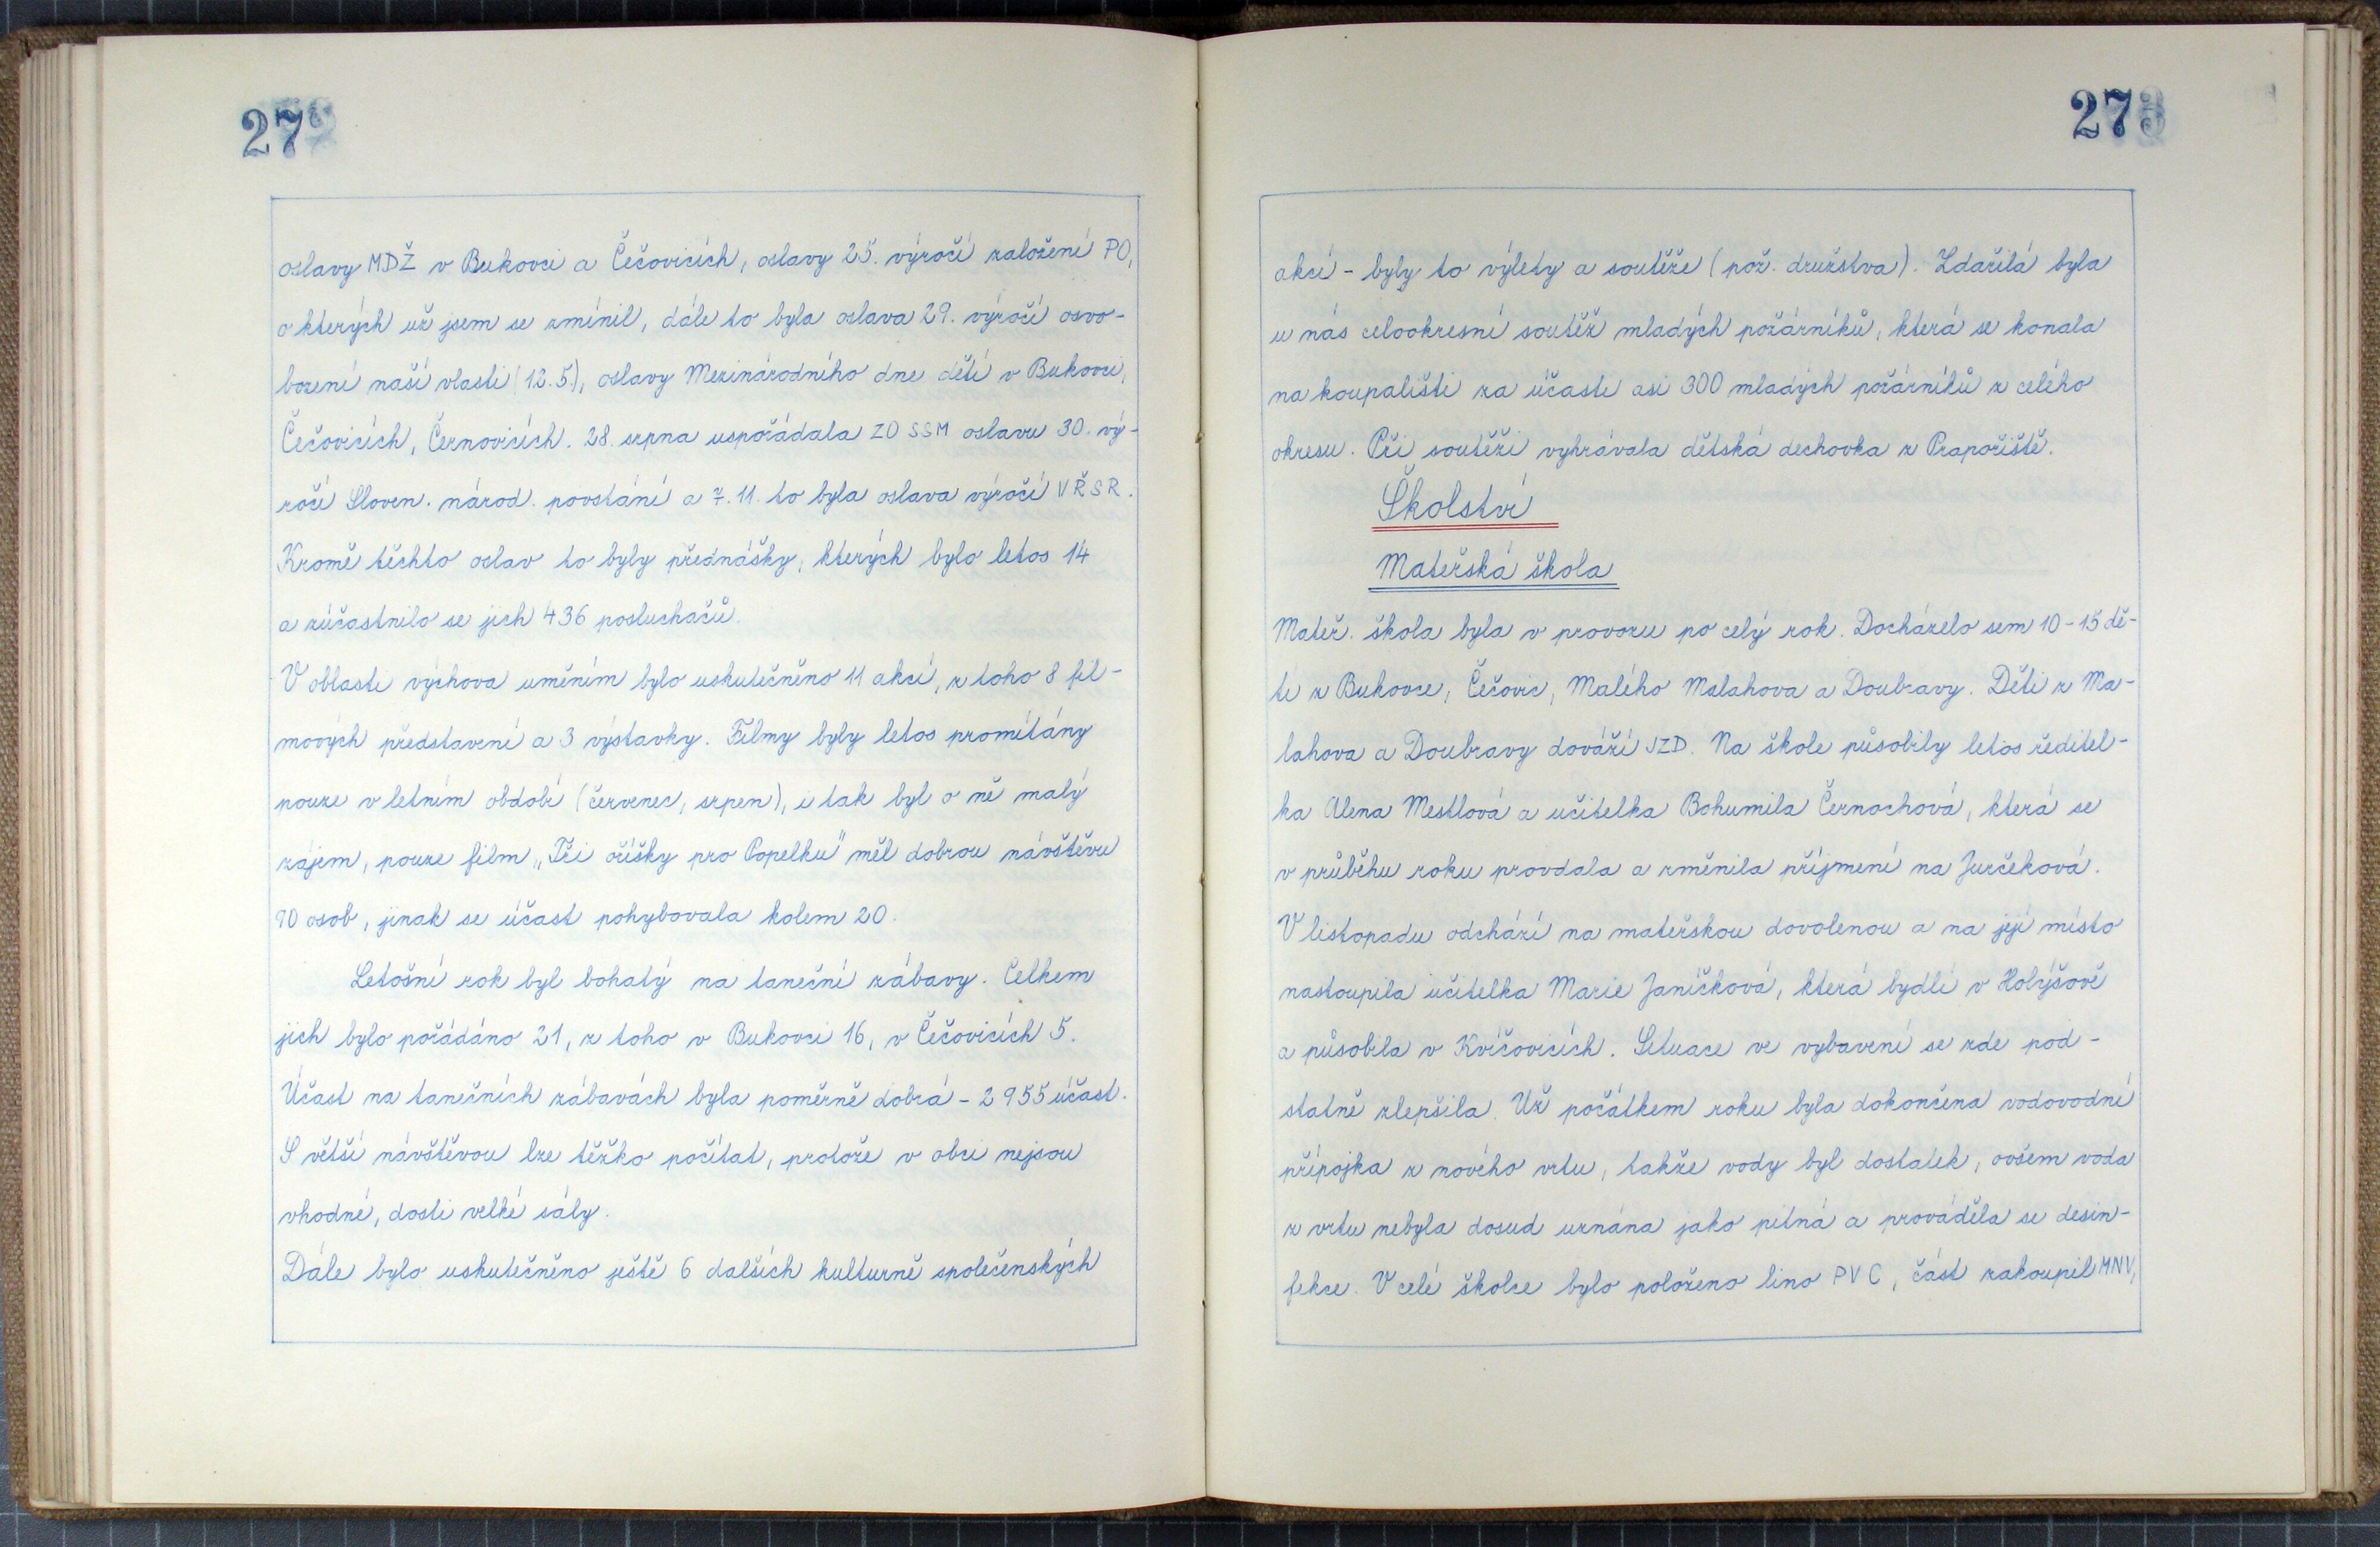 272
oslavy MDŽ v Bukovci a Čečovicích, oslavy 25. výročí založení PO,
o kterých už jsem se zmínil, dále to byla oslava 29. výročí osvo-
bození naší vlasti (12.5.), oslavy Mezinárodního dne dětí v Bukovci,
Čečovicích, Černovicích. 28. srpna uspořádala ZO SSM oslavu 30. vý-
ročí Sloven. národ. povstání a 7. 11. to byla oslava výročí VŘSR.
Kromě těchto oslav to byly přednášky, kterých bylo letos 14
a zúčastnilo se jich 436 posluchačů.
V oblasti výchova uměním bylo uskutečněno 11 akcí, z toho 8 fil-
mových představení a 3 výstavky. Filmy byly letos promítány
pouze v letním období (červenec, srpen), i tak byl o ně malý
zájem, pouze film „Tři oříšky pro Popelku" měl dobrou návštěvu
90 osob, jinak se účast pohybovala kolem 20.
Letošní rok byl bohatý na taneční zábavy. Celkem
jich bylo pořádáno 21, z toho v Bukovci 16, v Čečovicích 5.
Účast na tanečních zábavách byla poměrně dobrá - 2 955 účast.
S větší návštěvou lze těžko počítat, protože v obci nejsou
vhodné, dosti velké sály.
Dále bylo uskutečněno ještě 6 dalších kulturně společenských
273
akcí - byly to výlety a soutěže (pož. družstva). Zdařilá byla
u nás celookresní soutěž mladých požárníků, která se konala
na koupališti za účasti asi 300 mladých požárníků z celého
okresu. Při soutěži vyhrávala dětská dechovka z Prapořiště.
Školství
Mateřská škola
Mateř. škola byla v provozu po celý rok. Docházelo sem 10-15 dě-
tí z Bukovce, Čečovic, Malého Malahova a Doubravy. Děti z Ma-
lahova a Doubravy dováží JZD. Na škole působily letos ředitel-
ka Alena Mestlová a učitelka Bohumila Černochová, která se
v průběhu roku provdala a změnila příjmení na Jurčeková.
V listopadu odchází na mateřskou dovolenou a na její místo
nastoupila učitelka Marie Janíčková, která bydlí v Holýšově
a působila v Kvíčovicích. Situace ve vybavení se zde pod-
statně zlepšila. Už počátkem roku byla dokončena vodovodní
přípojka z nového vrtu, takže vody byl dostatek, ovšem voda
z vrtu nebyla dosud uznána jako pitná a prováděla se desin-
fekce. V celé školce bylo položeno lino PVC, část zakoupil MNV,